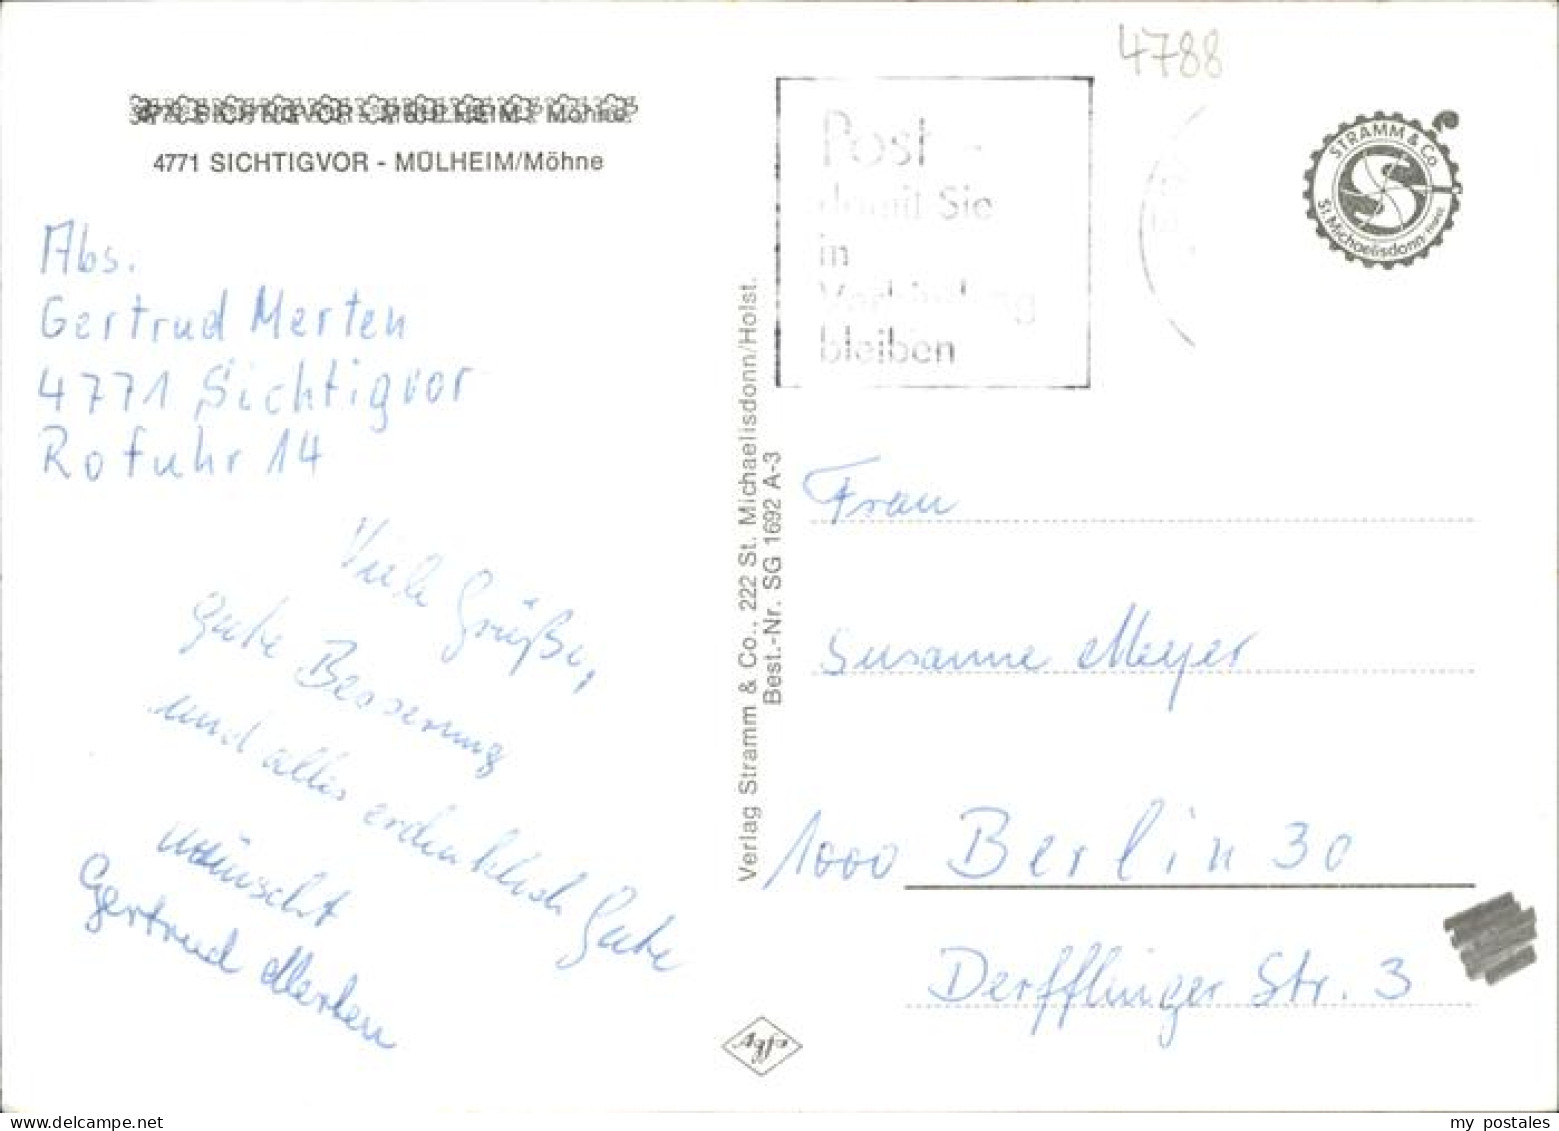 4788
4771 SICHTIGVOR - MÜLHEIM/Möhne
Abs.
Gertrud Merten
4771 Sichtigvor
Rofuhr 14
Viele Grüße,
gute Besserung
und alles erdenklich Gute
wünscht
Gertrud Merten
Verlag Stramm & Co., 222 St. Michaelisdonn/Holst.
Best.-Nr. SG 1692 A-3
Post -
damit Sie
in
Verbindung
bleiben
STRAMM & Co.
St. Michaelisdonn
Frau
Susanne Meyer
1000 Berlin 30
Derfflinger Str. 3
Agfa
my postales